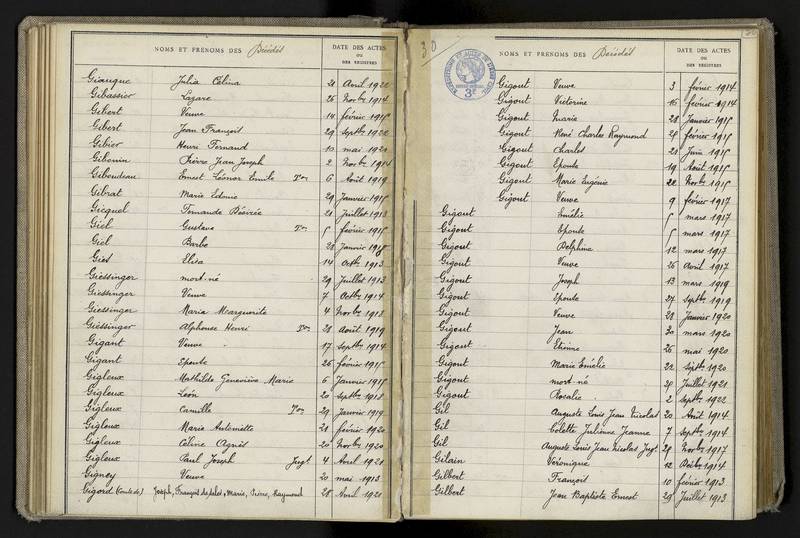 NOMS ET PRENOMS DES Décédés DATE DES ACTES OU DES REGISTRES
Giauque Julia Célina 21 Avril 1922
Gibassier Lazare 26 Novbre 1914
Gibert Veuve 14 février 1915
Gibert Jean François 29 Septbre 1920
Gibier Henri Fernand 10 mai 1920
Gibouin Pierre Jean Joseph 2 Novbre 1914
Giboudeau Ernest Léonor Emile Ton 6 Août 1919
Gibrat Marie Edmée 29 Janvier 1915
Gicquel Fernande Désirée 21 Juillet 1913
Giel Gustave Ton 5 février 1915
Giel Barbe 28 Janvier 1918
Giel Elisa 14 Octbre 1913
Giessinger mort-né 29 Juillet 1913
Giessinger Veuve 7 Octbre 1914
Giessinger Maria Marguerite 4 Novbre 1918
Giessinger Alphonse Henri Ton 28 Août 1919
Gigant Veuve 17 Septbre 1914
Gigant Epouse 26 février 1915
Gigleux Mathilde Geneviève Marie 6 Janvier 1915
Gigleux Léon 20 Septbre 1918
Gigleux Camille Ton 29 Janvier 1919
Gigleux Marie Antoinette 28 février 1920
Gigleux Céline Agnès 20 Novbre 1920
Gigleux Paul Joseph Jugt 4 Avril 1921
Gigney Veuve 20 mai 1913
Gigord (Comte de) Joseph, François de Sales, Marie, Pierre, Raymond 28 Avril 1921
30
NOMS ET PRENOMS DES Décédés DATE DES ACTES OU DES REGISTRES
Gigout Veuve 3 février 1914
Gigout Victorine 16 février 1914
Gigout Marie 28 Janvier 1915
Gigout René Charles Raymond 25 février 1915
Gigout Charles 21 Juin 1915
Gigout Epouse 19 Août 1915
Gigout Marie Eugénie 22 Novbre 1915
Gigout Veuve 9 février 1917
Gigout Emélie 5 mars 1917
Gigout Epouse 5 mars 1917
Gigout Delphine 12 mars 1917
Gigout Veuve 26 Avril 1917
Gigout Joseph 13 mars 1919
Gigout Epouse 27 Septbre 1919
Gigout Veuve 28 Janvier 1920
Gigout Jean 30 mars 1920
Gigout Etienne 26 mai 1920
Gigout Marie Emélie 22 Septbre 1920
Gigout mort-né 29 Juillet 1921
Gigout Rosalie 2 Septbre 1922
Gil Auguste Louis Jean Nicolas 20 Août 1914
Gil Colette Julienne Jeanne 7 Septbre 1914
Gil Auguste Louis Jean Nicolas Jugt 29 Novbre 1917
Gilain Véronique 12 Octbre 1914
Gilbert François 10 février 1913
Gilbert Jean Baptiste Ernest 29 Juillet 1913